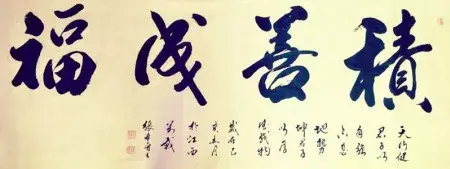 積善成福
天行健
君子以
自強
不息
地勢
坤君子
以厚
德載物
歲在己
亥五月
於江西
萬載
張